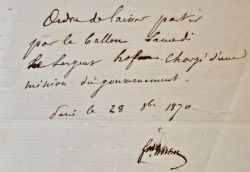 Ordre de laisser partir
par le ballon Samedi
le Sergent chargé d'une
mission du gouvernement.
Paris le 28 8bre 1870